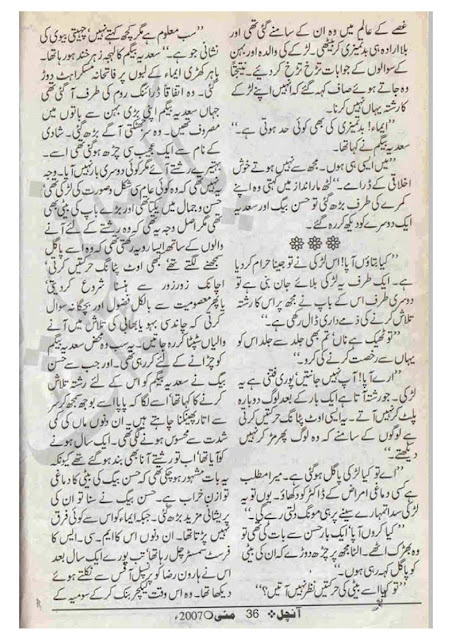 غصے کے عالم میں وہ ان کے سامنے گئی تھی اور
بلا ارادہ ہی بدتمیزی کر بیٹھی۔ لڑکے کی والدہ اور بہن
کے سوالوں کے جوابات تڑخ تڑخ کر دیے۔ نتیجتاً
وہ جاتے ہوئے صاف کہہ گئے کہ انہیں اپنے لڑکے
کا رشتہ یہاں نہیں کرنا۔
”ایماء! بدتمیزی کی بھی کوئی حد ہوتی ہے۔“
سعدیہ بیگم نے کہا تھا۔
”میں ایسی ہی ہوں۔ مجھ سے نہیں ہوتے خوش
اخلاقی کے ڈرامے۔“ لٹھ مار انداز میں کہتی وہ اپنے
کمرے کی طرف بڑھ گئی تو حسن بیگ اور سعدیہ
ایک دوسرے کو دیکھ کر رہ گئے۔
❋❋❋
”کیا بتاؤں آپا! اس لڑکی نے تو جینا حرام کر دیا
ہے۔ ایک طرف یہ لڑکی بلائے جان بنی ہے تو
دوسری طرف اس کے باپ نے مجھ پر اس کا رشتہ
تلاش کرنے کی ذمے داری ڈال رکھی ہے۔“
”تو ٹھیک ہے ناں‘ تم بھی جلد سے جلد اس کو
یہاں سے رخصت کرنے کی کرو۔“
”ارے آپا! آپ نہیں جانتیں‘ پوری فتنی ہے یہ
لڑکی۔ جو رشتہ آتا ہے ایک بار کے بعد لوگ دوبارہ
پلٹ کر نہیں آتے۔ یہ ایسی اوٹ پٹانگ حرکتیں کرتی
ہے لوگوں کے سامنے کہ وہ لوگ پھر مڑ کر نہیں
دیکھتے۔“
”اے تو کیا لڑکی پاگل ہو گئی ہے۔ میرا مطلب
ہے کسی دماغی امراض کے ڈاکٹر کو دکھاؤ۔ یوں تو یہ
لڑکی سدا تمہارے سینے پر ہی مونگ دلتی رہے گی۔“
”کیا کروں آپا‘ ایک بار حسن سے بات کی تھی تو
وہ بھڑک اٹھے۔ الٹا مجھ پر چڑھ دوڑے کہ ان کی بیٹی
کو پاگل کہہ رہی ہوں۔“
”تو کیا اسے بیٹی کی حرکتیں نظر نہیں آتیں؟“
”سب معلوم ہے مگر کچھ کہتے نہیں چہیتی بیوی کی
نشانی جو ہے۔“ سعدیہ بیگم کا لہجہ زہر خند ہو رہا تھا۔
باہر کھڑی ایماء کے لبوں پر فاتحانہ مسکراہٹ دوڑ
گئی۔ وہ اتفاقاً ڈرائنگ روم کی طرف آ گئی تھی
جہاں سعدیہ بیگم اپنی بڑی بہن سے باتوں میں
مصروف تھیں۔ وہ سر جھٹکتی آگے بڑھ گئی۔ شادی
کے نام سے ایک عجیب سی چڑ ہو گئی تھی اسے۔
بہتیرے رشتے آئے مگر کوئی دوسری بار نہیں آیا۔ وجہ
یہ نہیں تھی کہ وہ کوئی عام سی شکل و صورت کی لڑکی تھی‘
حسن و جمال میں یکتا تھی اور بڑے باپ کی بیٹی بھی
تھی مگر اصل وجہ یہ تھی کہ وہ رشتہ کے لیے آنے
والوں کے ساتھ ایسا رویہ رکھتی تھی کہ وہ اسے پاگل
سمجھنے لگتے تھے‘ کبھی اوٹ پٹانگ حرکتیں کرتی‘
اچانک زور زور سے ہنسنا شروع کر دیتی‘
یا پھر معصومیت سے بالکل فضول اور بچگانہ سوال
کرتی کہ چاند سی بہو یا بھابی کی تلاش میں آنے
والیاں سٹپٹا کر رہ جاتیں۔ یہ سب وہ محض سعدیہ بیگم
کو چڑانے کے لیے کر رہی تھی۔ اور جب سے حسن
بیگ نے سعدیہ بیگم کو اس کے لئے رشتہ تلاش
کرنے کا کہا تھا‘ اسے لگا کہ پاپا اسے بوجھ سمجھ کر سر
سے اتار پھینکنا چاہتے ہیں۔ ان دنوں ماں کی کمی
شدت سے محسوس ہونے لگی تھی۔ ایک سال ہونے
کو آیا تھا‘ اب تو رشتے آنا بھی بند ہو گئے تھے کیونکہ
یہ بات مشہور ہو چکی تھی کہ حسن بیگ کی بیٹی کا دماغی
توازن خراب ہے۔ حسن بیگ نے سنا تو ان کی
پریشانی مزید بڑھ گئی۔ جبکہ ایماء کو اس سے کوئی فرق
نہیں پڑتا تھا۔ ان دنوں اس کا ایم۔ سی۔ ایس کا
فرسٹ سمسٹر چل رہا تھا‘ تب پورے ایک سال بعد
اس نے ہارون رضا کو پرنسپل آفس سے نکلتے ہوئے
دیکھا تھا۔ وہ اس وقت لیکچر بنک کر کے سومیہ کے
آنچل ❖ 36 مئی 2007ء